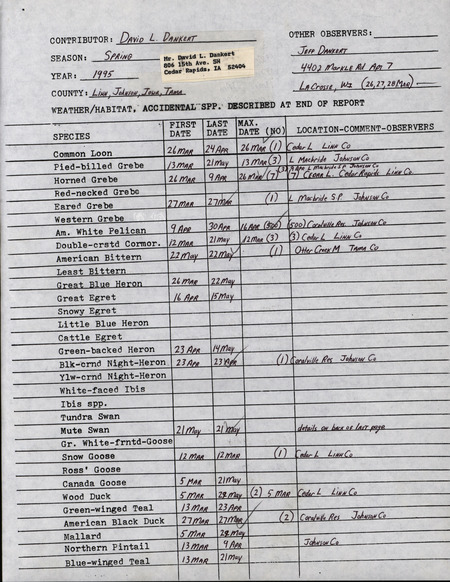 CONTRIBUTOR: DAVID L. DANKERT OTHER OBSERVERS:
SEASON: SPRING Mr. David L. Dankert JEFF DANKERT
806 15th Ave. SW
YEAR: 1995 Cedar Rapids, IA 52404 4402 MARKLE RD APT 7
COUNTY: LINN, JOHNSON, IOWA, TAMA LACROSSE, WI (26,27,28 MAR)
WEATHER/HABITAT, ACCIDENTAL SPP. DESCRIBED AT END OF REPORT
FIRST LAST MAX.
SPECIES DATE DATE DATE (NO) LOCATION-COMMENT-OBSERVERS
Common Loon 26 MAR 24 APR 26 MAR (1) Cedar L Linn Co
Pied-billed Grebe 13 MAR 21 May 13 MAR (3) L Macbride Johnson Co
Horned Grebe 26 MAR 9 APR 26 MAR (7) (7) CEDAR L. Cedar Rapids Linn Co
Red-necked Grebe
Eared Grebe 27 MAR 27 MAR (1) L Macbride S.P. Johnson Co
Western Grebe
Am. White Pelican 9 APR 30 APR 16 APR (500) (500) Coralville Res Johnson Co
Double-crstd Cormor. 12 MAR 21 May 12 MAR (3) (3) Cedar L Linn Co
American Bittern 22 May 22 May (1) Otter Creek M Tama Co
Least Bittern
Great Blue Heron 26 MAR 22 May
Great Egret 16 APR 15 May
Snowy Egret
Little Blue Heron
Cattle Egret
Green-backed Heron 23 APR 14 May
Blk-crnd Night-Heron 23 APR 23 APR (1) Coralville Res Johnson Co
Ylw-crnd Night-Heron
White-faced Ibis
Ibis spp.
Tundra Swan
Mute Swan 21 May 21 May details on back of last page
Gr. White-frntd-Goose
Snow Goose 12 MAR 12 MAR (1) Cedar L Linn Co
Ross' Goose
Canada Goose 5 MAR 21 May
Wood Duck 5 MAR 28 May (2) 5 MAR Cedar L Linn Co
Green-winged Teal 13 MAR 23 APR
American Black Duck 27 MAR 27 MAR (2) Coralville Res Johnson Co
Mallard 5 MAR 28 May
Northern Pintail 13 MAR 9 APR Johnson Co
Blue-winged Teal 13 MAR 21 May